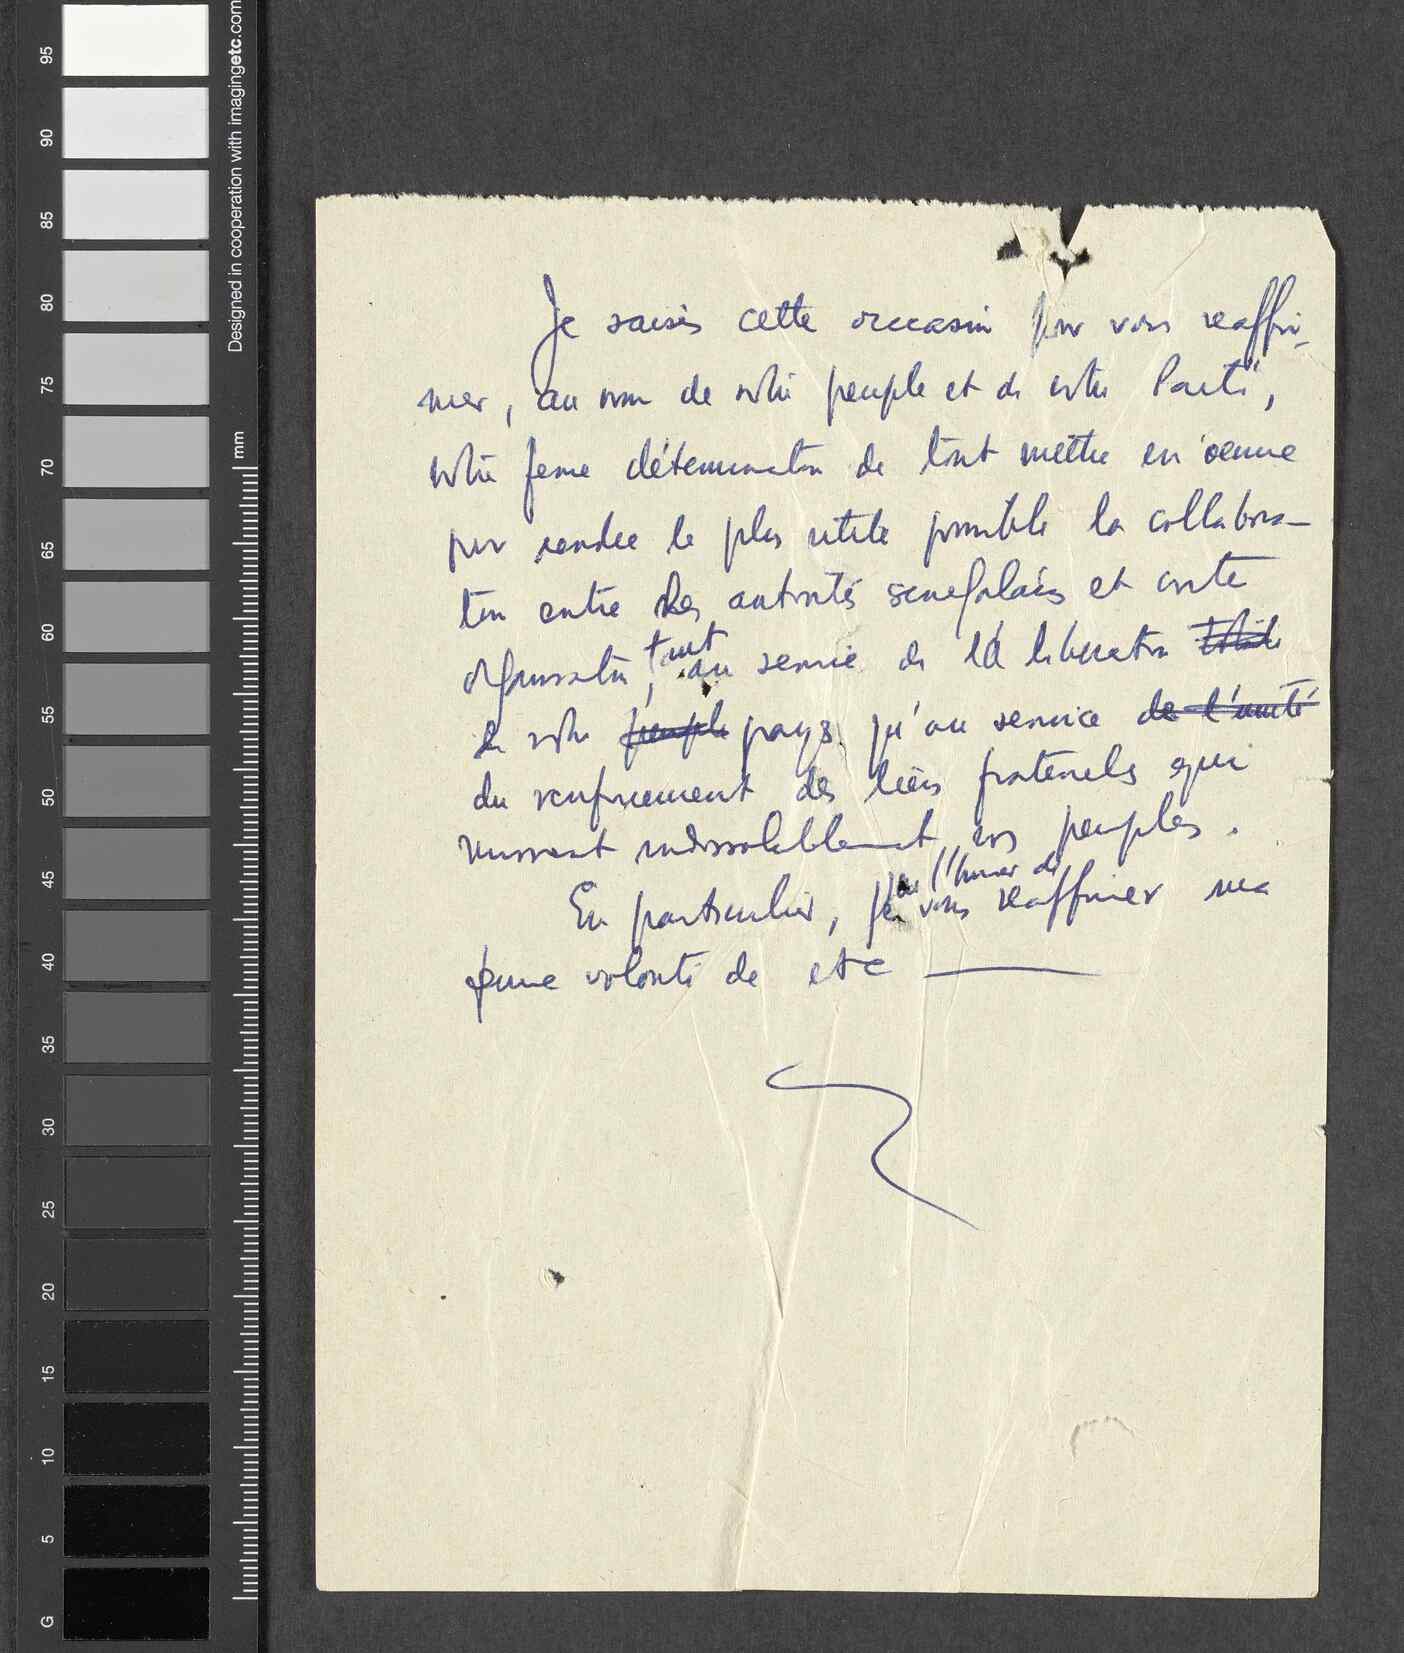 Designed in cooperation with imagingetc.com
mm
95
90
85
80
75
70
65
60
55
50
45
40
35
30
25
20
15
10
5
G
Je saisis cette occasion pour vous reaffir-
mer, au nom de notre peuple et de notre Parti,
notre ferme détermination de tout mettre en oeuvre
pour rendre le plus utile possible la collabora-
tion entre les autorités senegalais et notre
Organisation, tant au service de la liberation
de notre peuple pays qu'au service de l'unité
du renforcement des liens fraternels qui
unissent indissolublement nos peuples.
En particulier, j'ai l'honneur de vous reaffirmer ma
ferme volonté de etc